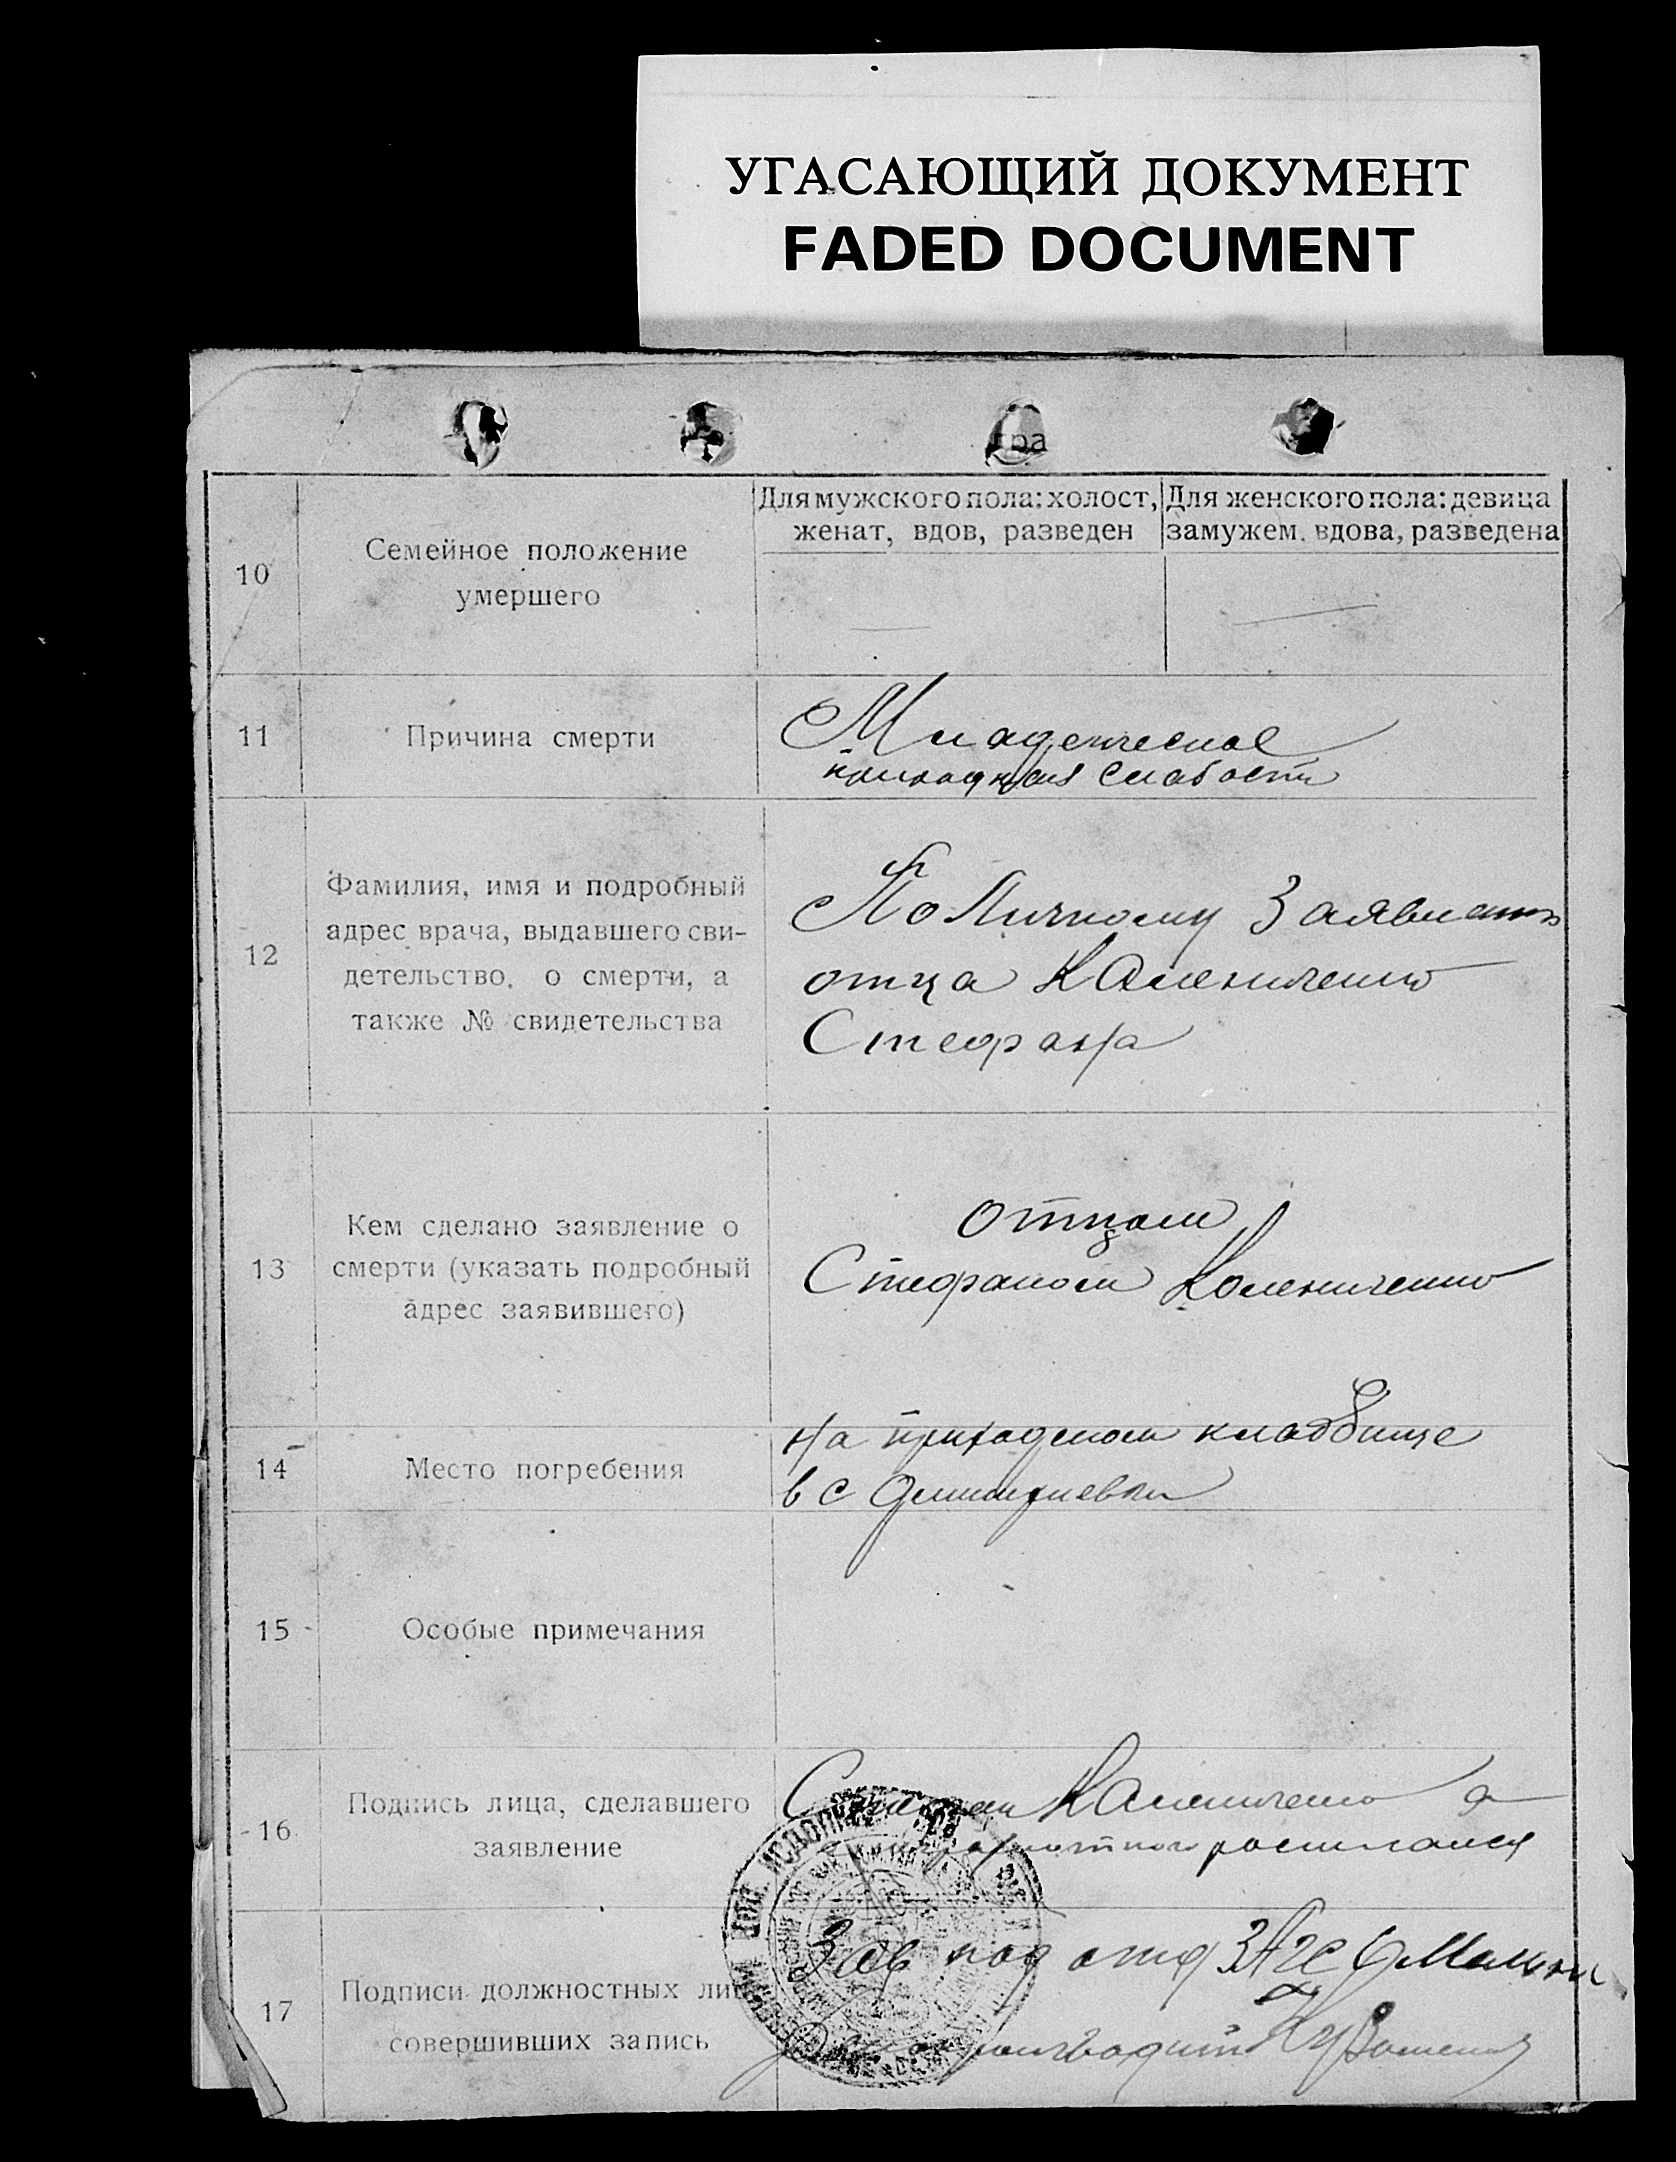 УГАСАЮЩИЙ ДОКУМЕНТ
FADED DOCUMENT
10
Семейное положение
умершего
Для мужского пола: холост,
женат, вдов, разведен
Для женского пола: девица
замужем. вдова, разведена
11
Причина смерти
Младенческое
слабости
12
Фамилия, имя и подробный
адрес врача, выдавшего сви-
детельство, о смерти, а
также № свидетельства
По Личному Заявлению
отца Калениченко
Стефана
13
Кем сделано заявление о
смерти (указать подробный
адрес заявившего)
отцом
СтефаномКолениченко
14
Место погребения
на приходском кладбище
в с
15
Особые примечания
16
Подпись лица, сделавшего
заявление
Стефан Калениченко а
17
Подписи должностных лиц
совершивших запись
Зав под отд ЗАГС